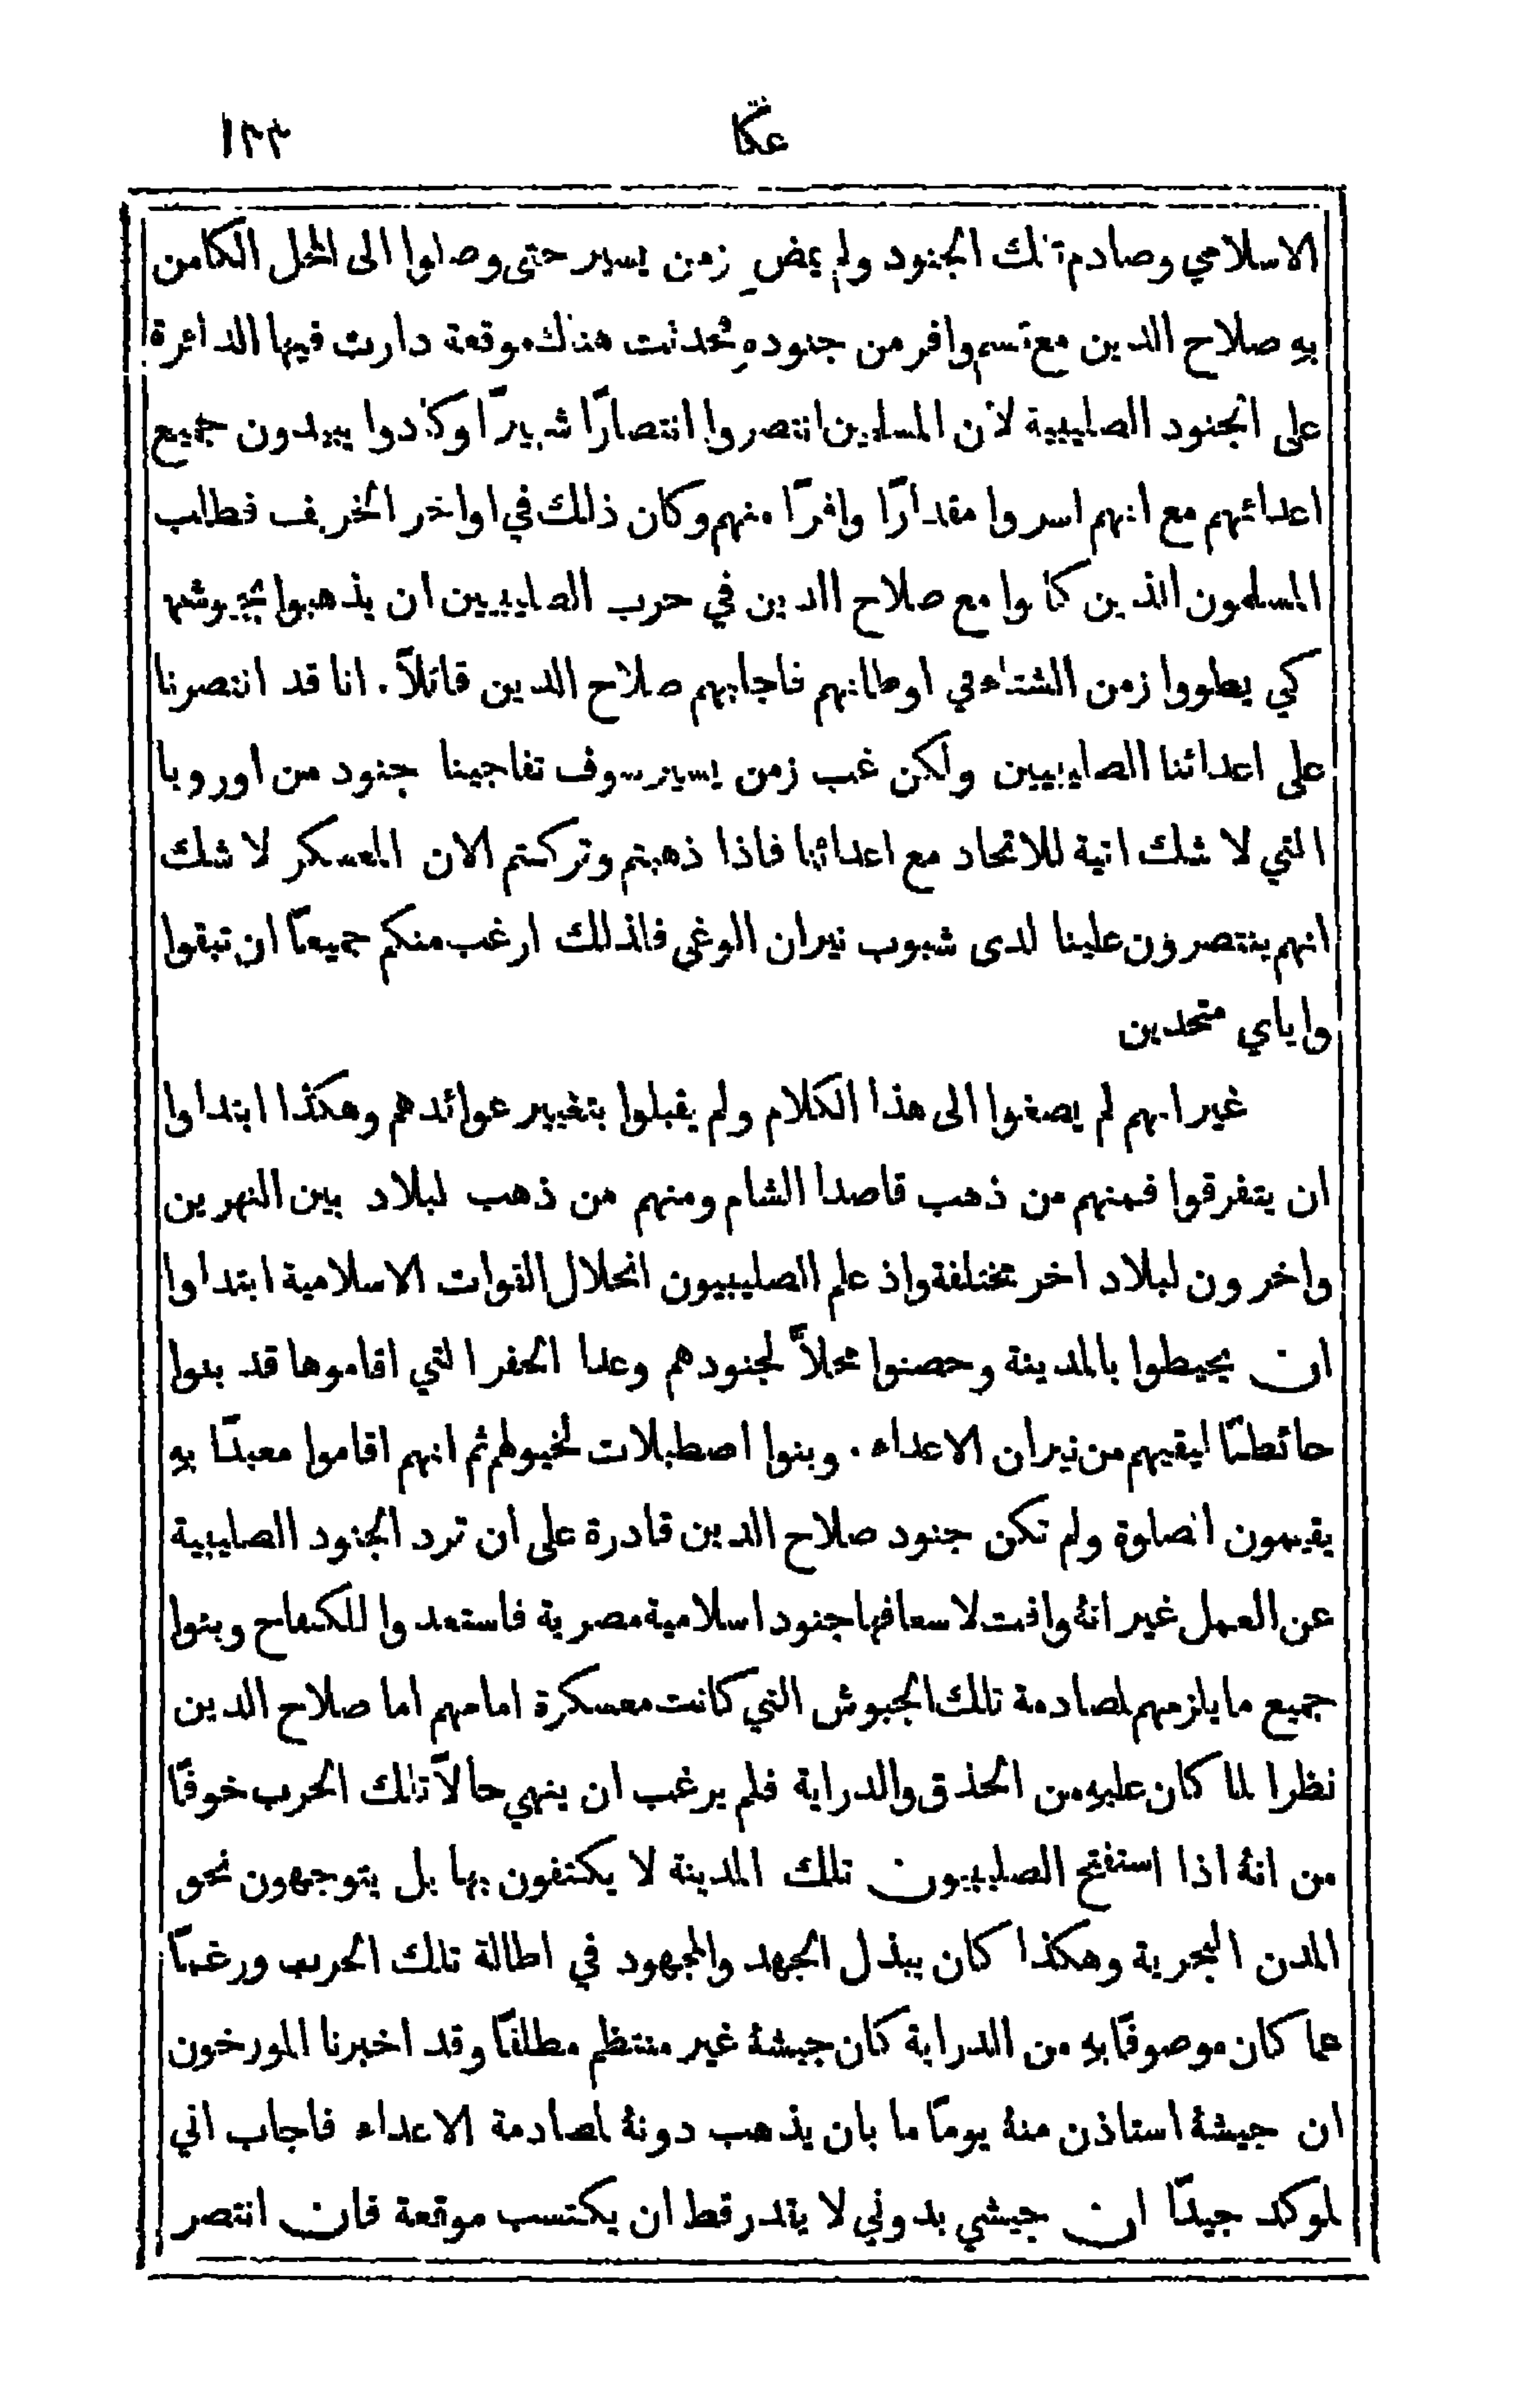 عكا ١٢٣
الاسلامي وصادم تلك الجنود ولم يمضِ زمن يسير حتى وصلوا الى المحل الكامن
بهِ صلاح الدين مع قسم وافر من جنودهِ فحدثت هناك موقعة دارت فيها الدائرة
على الجنود الصليبية لان المسلمين انتصروا انتصارًا شهيرًا وكادوا يبيدون جميع
اعدائهم مع انهم اسروا مقدارًا وافرًا منهم وكان ذلك في اواخر الخريف فطلب
المسلمون الذين كانوا مع صلاح الدين في حرب الصليبيين ان يذهبوا بجيوشهم
كي يطووا زمن الشتاء في اوطانهم فاجابهم صلاح الدين قائلاً. انا قد انتصرنا
على اعدائنا الصليبيين ولكن غب زمن يسير سوف تفاجينا جنود من اوروبا
التي لا شك اتية للاتحاد مع اعدائنا فاذا ذهبتم وتركتم الان المعسكر لا شك
انهم ينتصرون علينا لدى شبوب نيران الوغى فلذلك ارغب منكم جميعًا ان تبقوا
واياي متحدين
غير انهم لم يصغوا الى هذا الكلام ولم يقبلوا بتغيير عوائدهم وهكذا ابتداوا
ان يتفرقوا فمنهم من ذهب قاصدا الشام ومنهم من ذهب لبلاد بين النهرين
واخرون لبلاد اخر مختلفة واذ علم الصليبيون انحلال القوات الاسلامية ابتداوا
ان يحيطوا بالمدينة وحصنوا محلاً لجنودهم وعدا الحفر التي اقاموها قد بنوا
حائطًا ليقيهم من نيران الاعداء. وبنوا اصطبلات لخيولهم ثم انهم اقاموا معبدًا بهِ
يقيمون الصلوة ولم تكن جنود صلاح الدين قادرة على ان ترد الجنود الصليبية
عن العمل غير انهُ وافت لاسعافها جنود اسلامية مصرية فاستعدوا للكفاح وبنوا
جميع ما يلزمهم لصادمة تلك الجيوش التي كانت معسكرة امامهم اما صلاح الدين
نظرا لما كان عليهِ من الحذق والدراية فلم يرغب ان ينهي حالاً تلك الحرب خوفًا
من انهُ اذا استفتح الصليبيون تلك المدينة لا يكتفون بها بل يتوجهون نحو
المدن البحرية وهكذا كان يبذل الجهد والمجهود في اطالة تلك الحرب ورغمًا
عما كان موصوفًا بهِ من الدراية كان جيشهُ غير منتظم مطلقًا وقد اخبرنا المورخون
ان جيشهُ استاذن منهُ يومًا ما بان يذهب دونهُ لصادمة الاعداء فاجاب اني
لموكد جيدًا ان جيشي بدوني لا يقدر قط ان يكتسب موقعة فان انتصر